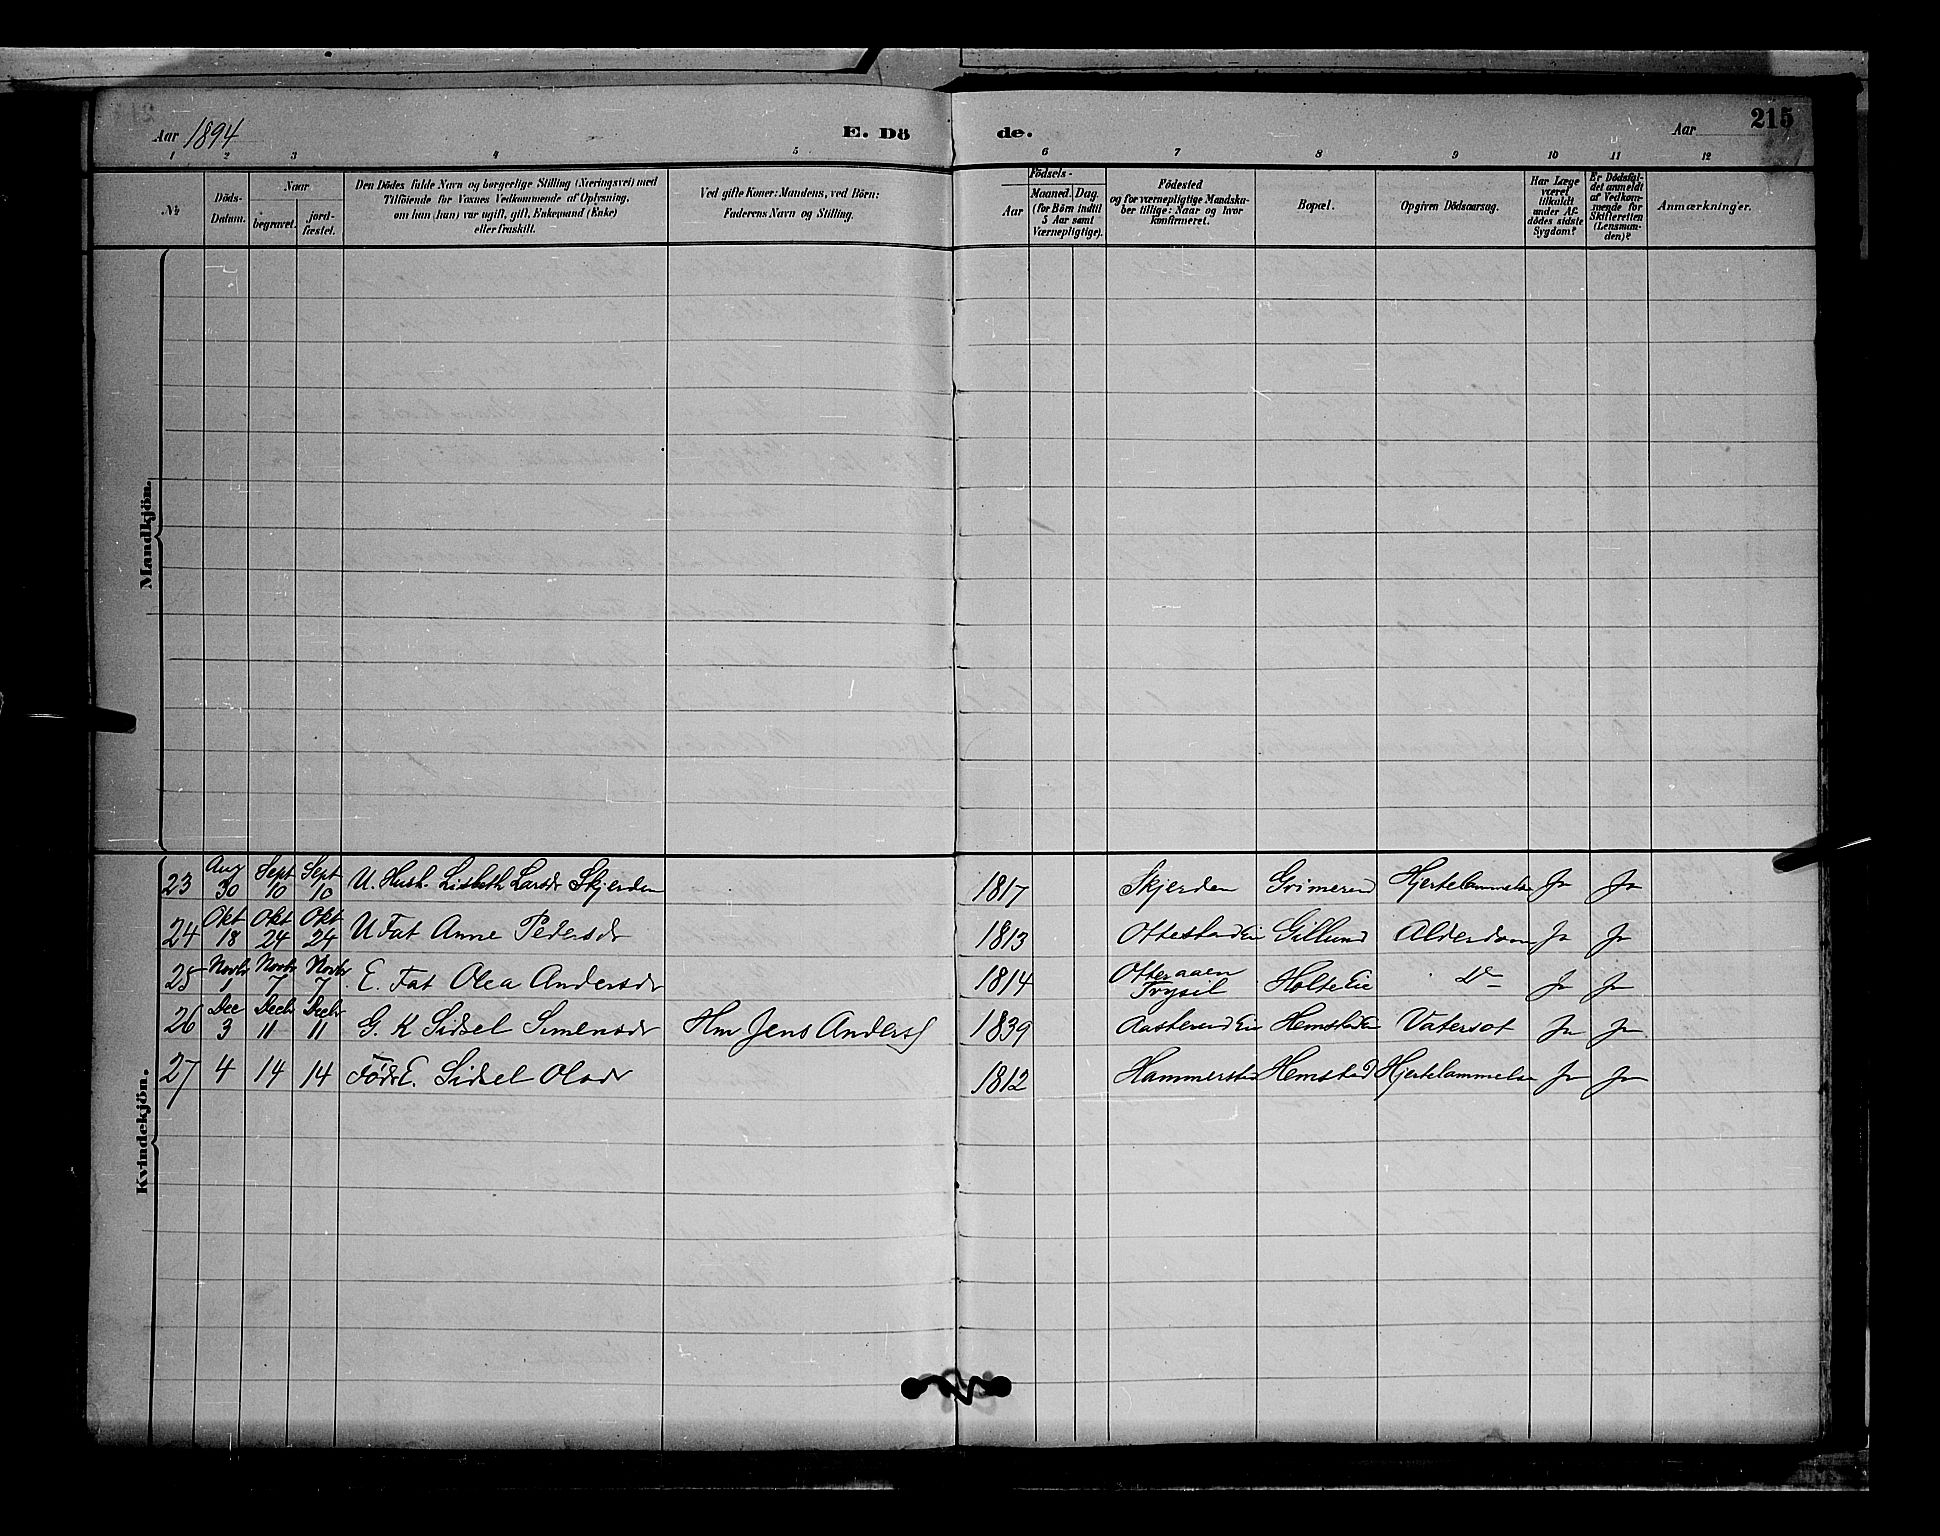 Aar 1894
E. Dö
de.
Aar
215
1 2 3 4 5 6 7 8 9 10 11 12
№
Döds-
Datum.
Naar
begravet.
jord-
fæstet.
Den Dödes fulde Navn og borgerlige Stilling (Næringsvei) med
Tilföiende for Voxnes Vedkommende af Oplysning,
om han (hun) var ugift, gift, Enkemand (Enke)
eller fraskilt.
Ved gifte Koner: Mandens, ved Börn:
Faderens Navn og Stilling.
Födsels-
Aar
Maaned. Dag.
(for Börn indtil
5 Aar samt
Værnepligtige).
Födested
og for værnepligtige Mandska-
ber tillige: Naar og hvor
konfirmeret.
Bopæl.
Opgiven Dödsaarsag.
Har Læge
været
tilkaldt
under Af-
dödes sidste
Sygdom?
Er Dödsfal-
det anmeldt
af Vedkom-
mende for
Skifteretten
(Lensman-
den)?
Anmærkninger.
Mandkjön.
Kvindekjön.
23 Aug 30 Sept 10 Sept 10 U. Hush. Lisbeth Larsdr Skjerden 1817 Skjerden Grimerud Hjertelammelse Ja Ja
24 Okt 18 Okt 24 Okt 24 U Fat Anne Pedersdr 1813 Ottestadeie Gillund Alderdom Ja Ja
25 Novbr 1 Novbr 7 Novbr 7 E. Fat Olea Andersdr 1814 Otteraaen Trysil Holteeie Do Ja Ja
26 Dec 3 Decbr 11 Decbr 11 G. K Sidsel Simensdr Hm Jens Anders 1839 Aasterudeie Hemstadeie Vatersot Ja Ja
27 4 14 14 Føder. E. Sidsel Olsdr 1812 Hammerstad Hemstad Hjertelammelse Ja Ja